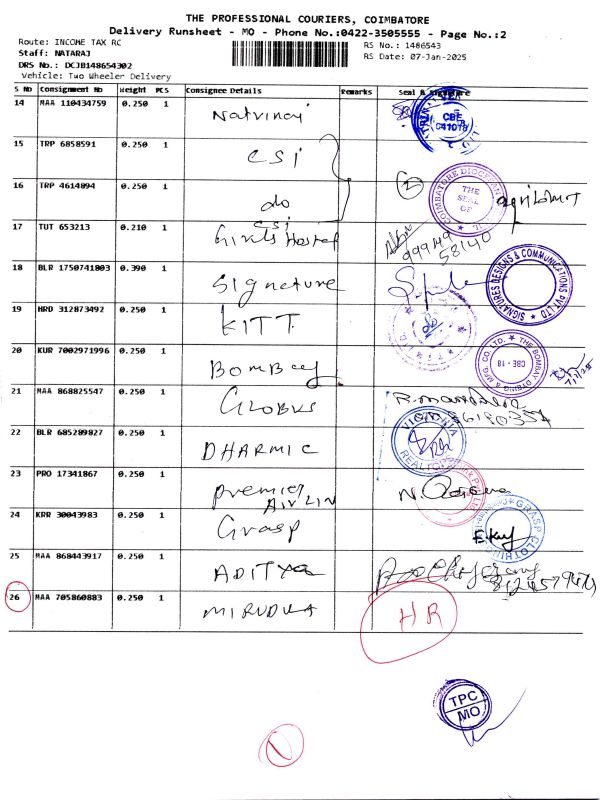 THE PROFESSIONAL COURIERS, COIMBATORE
Delivery Runsheet - MO - Phone No.:0422-3505555 - Page No.:2
Route: INCOME TAX RC
RS No.: 1486543
Staff: NATARAJ
RS Date: 07-Jan-2025
DRS No.: DCJB148654302
Vehicle: Two Wheeler Delivery
S No Consignment No Weight PCS Consignee Details Remarks Seal & Signature
14 MAA 110434759 0.250 1
CBE
641018
15 TRP 6858591 0.250 1 CSI
16 TRP 4614894 0.250 1 do
COIMBATORE DIOCESAN
THE SEAL OF
17 TUT 653213 0.210 1 CSI Girls Hostel
99949 58140
18 BLR 1750741803 0.390 1 Signature
SIGNATURES DESIGNS & COMMUNICATIONS PVT LTD
19 HRD 312873492 0.250 1 KITT
20 KUR 7002971996 0.250 1 BOMBAY
THE BOMBAY DYEING & MFG. CO. LTD.
CBE - 18
21 MAA 868825547 0.250 1 GLOBUS
22 BLR 685289827 0.250 1 DHARMIC
23 PRO 17341867 0.250 1 premier AIRLIN
24 KRR 30043983 0.250 1 Grasp
GRASP CLOTHING
25 MAA 868443917 0.250 1 ADITYA
26 MAA 705860883 0.250 1 MIRUDULA HR
TPC
MO